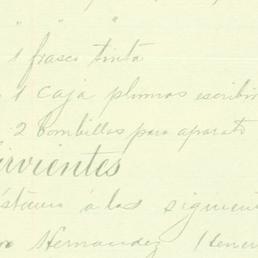 " "
1 frasco tinta
1 caja plumas escribir
2 bombillas para aparato
irvientes
istencia á las siguient
Hernandez